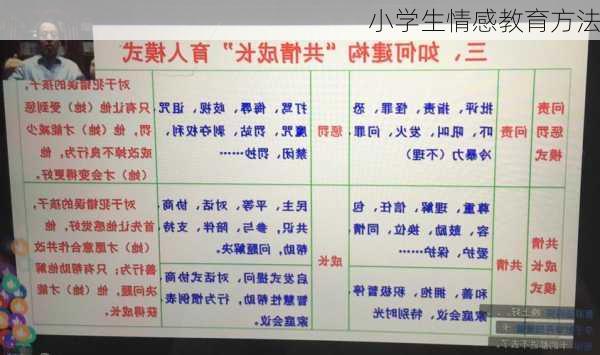 小学生情感教育方法
三、如何建构“共情成长”育人模式
问责
惩罚
模式
问责
批评、指责、怪罪、恐
吓、吼叫、发火、问罪、
冷暴力（不理）
惩罚
打骂、侮辱、歧视、诅咒、
魔咒、罚站、剥夺权利、
禁闭、罚抄……
对于犯错误的孩子，
只有让他（她）受到惩
罚，他（她）才能减少
或改掉不良行为，他
（她）才会变得更好。
共情
成长
模式
共情
尊重、理解、信任、包
容、鼓励、换位、同情、
爱护、保护……
和善、拥抱、积极暂停
、特别时光
家庭会议
成长
民主、平等、对话、协商、
共识、参与、陪伴、支持、
帮助，问题解决。
启发式提问、对话式协商
智慧性帮助，行为惯例表
家庭会议。
对于犯错误的孩子，
首先让他感觉好，他
（她）才愿意合作并改
善行为；只有帮助他解
决问题，他（她）才能
获得成长。
晚上好。